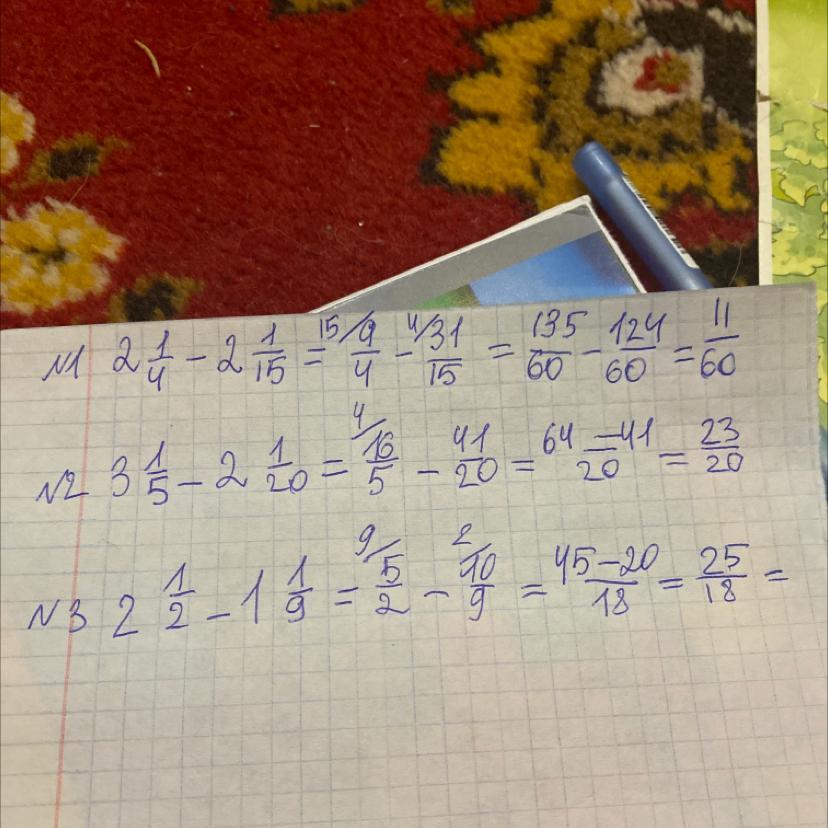 №1 2 1/4 − 2 1/15 = 15/ 9/4 − 4/ 31/15 = 135/60 − 124/60 = 11/60
№2 3 1/5 − 2 1/20 = 4/ 16/5 − 41/20 = 64−41/20 = 23/20
№3 2 1/2 − 1 1/9 = 9/ 5/2 − 2/ 10/9 = 45−20/18 = 25/18 =